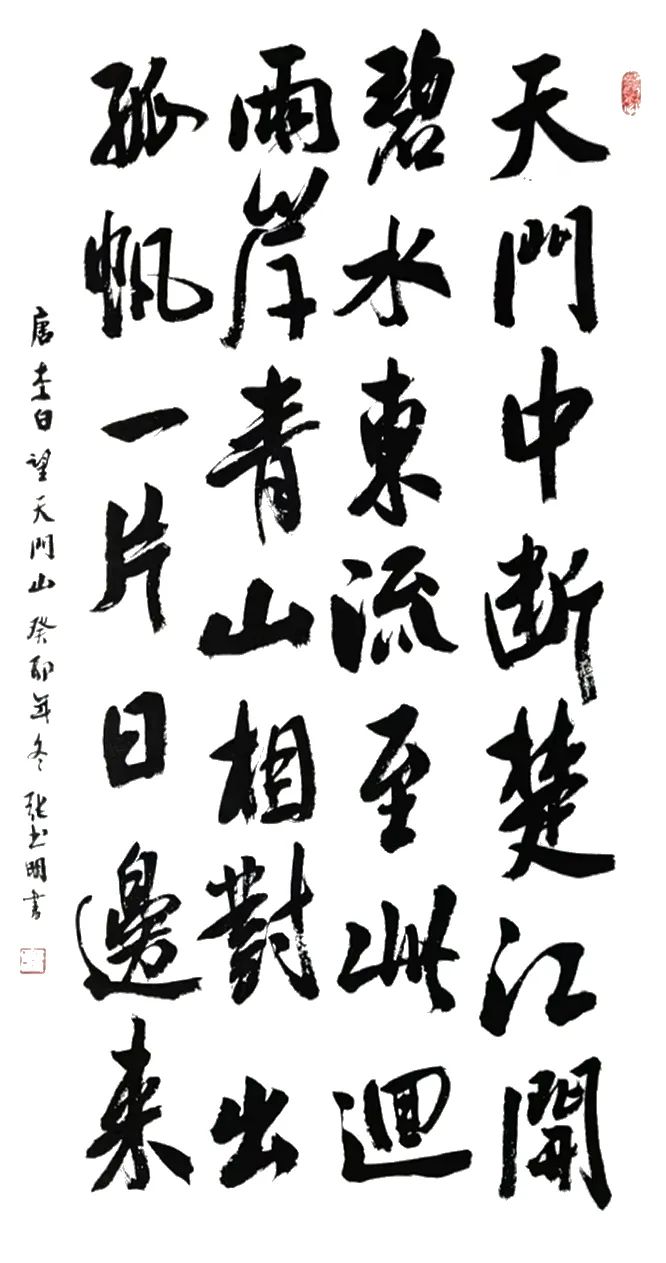 天門中斷楚江開
碧水東流至此迴
兩岸青山相對出
孤帆一片日邊来
唐李白望天門山癸卯年冬張書明書